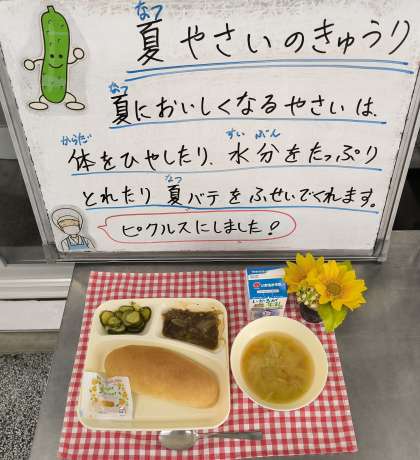 なつ
夏やさいのきゅうり
なつ
夏においしくなるやさいは、
からだ すいぶん
体をひやしたり、水分をたっぷり
なつ
とれたり夏バテをふせいでくれます。
ピクルスにしました!